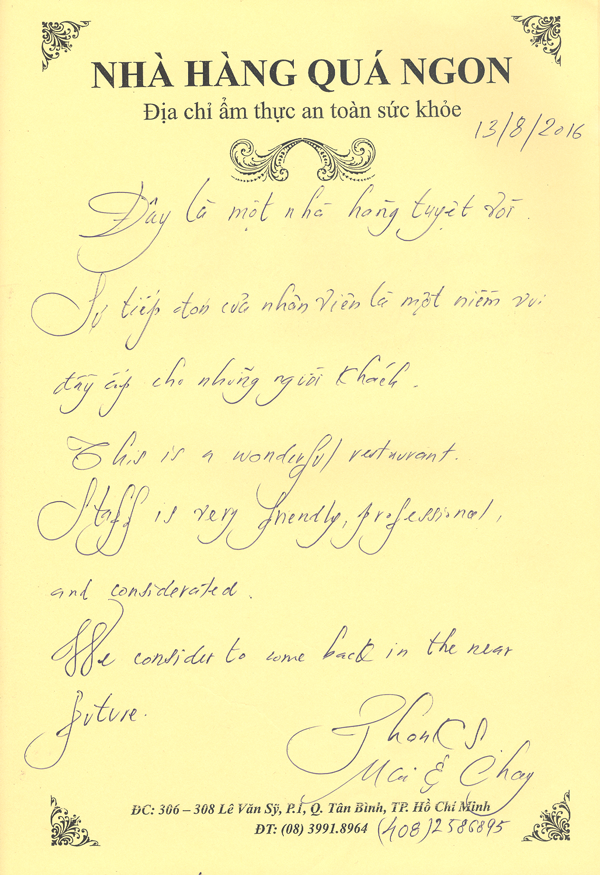 NHÀ HÀNG QUÁ NGON
Địa chỉ ẩm thực an toàn sức khỏe
13/8/2016
Đây là một nhà hàng tuyệt vời.
Sự tiếp đón của nhân viên là một niềm vui
đầy ắp cho những người khách.
This is a wonderful restaurant.
Staff is very friendly, professional,
and considerated.
We consider to come back in the near
future.
Thanks
Mai &
ĐC: 306 – 308 Lê Văn Sỹ, P.1, Q. Tân Bình, TP. Hồ Chí Minh
ĐT: (08) 3991.8964 (408) 2586895